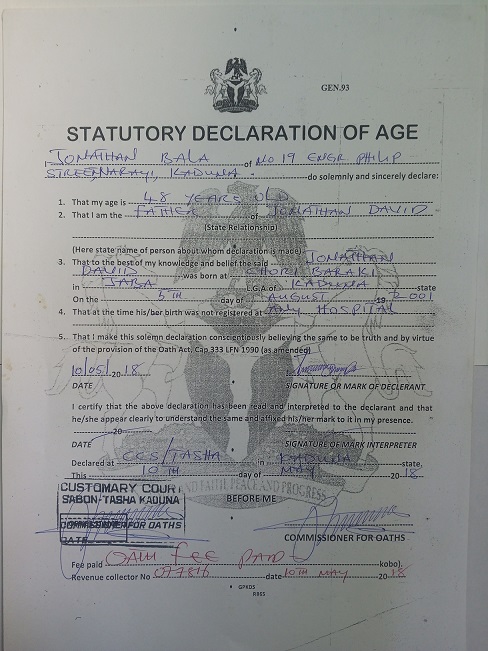 GEN.93
STATUTORY DECLARATION OF AGE
JONATHAN BALA of NO 19 ENGR PHILIP
STREET, NARAYI, KADUNA. do solemnly and sincerely declare:
1. That my age is 48 YEARS OLD
2. That I am the FATHER of JONATHAN DAVID
(State Relationship)
(Here state name of person about whom declaration is made)
3. That to the best of my knowledge and belief the said JONATHAN
DAVID was born at CHORI BARAKI
in JABA L.G.A of KADUNA state
On the 5TH day of AUGUST 19 2001
4. That at the time his/her birth was not registered at ANY HOSPITAL
5. That I make this solemn declaration conscientiously believing the same to be truth and by virtue
of the provision of the Oath Act, Cap 333 LFN 1990 (as amended)
10/05/2018
DATE SIGNATURE OR MARK OF DECLERANT
I certify that the above declaration has been read and interpreted to the declarant and that
he/she appear clearly to understand the same and affixed his/her mark to it in my presence.
20
DATE SIGNATURE OF MARK INTERPRETER
Declared at CCS/TASHA in KADUNA state,
This 10TH day of MAY 2018
AND FAITH, PEACE AND PROGRESS
CUSTOMARY COURT
SABON-TASHA KADUNA
COMMISSIONER FOR OATHS
DATE
BEFORE ME
COMMISSIONER FOR OATHS
Fee paid OATH FEE PAID kobo).
Revenue collector No 077816 date 10TH MAY 2018
GPKDS